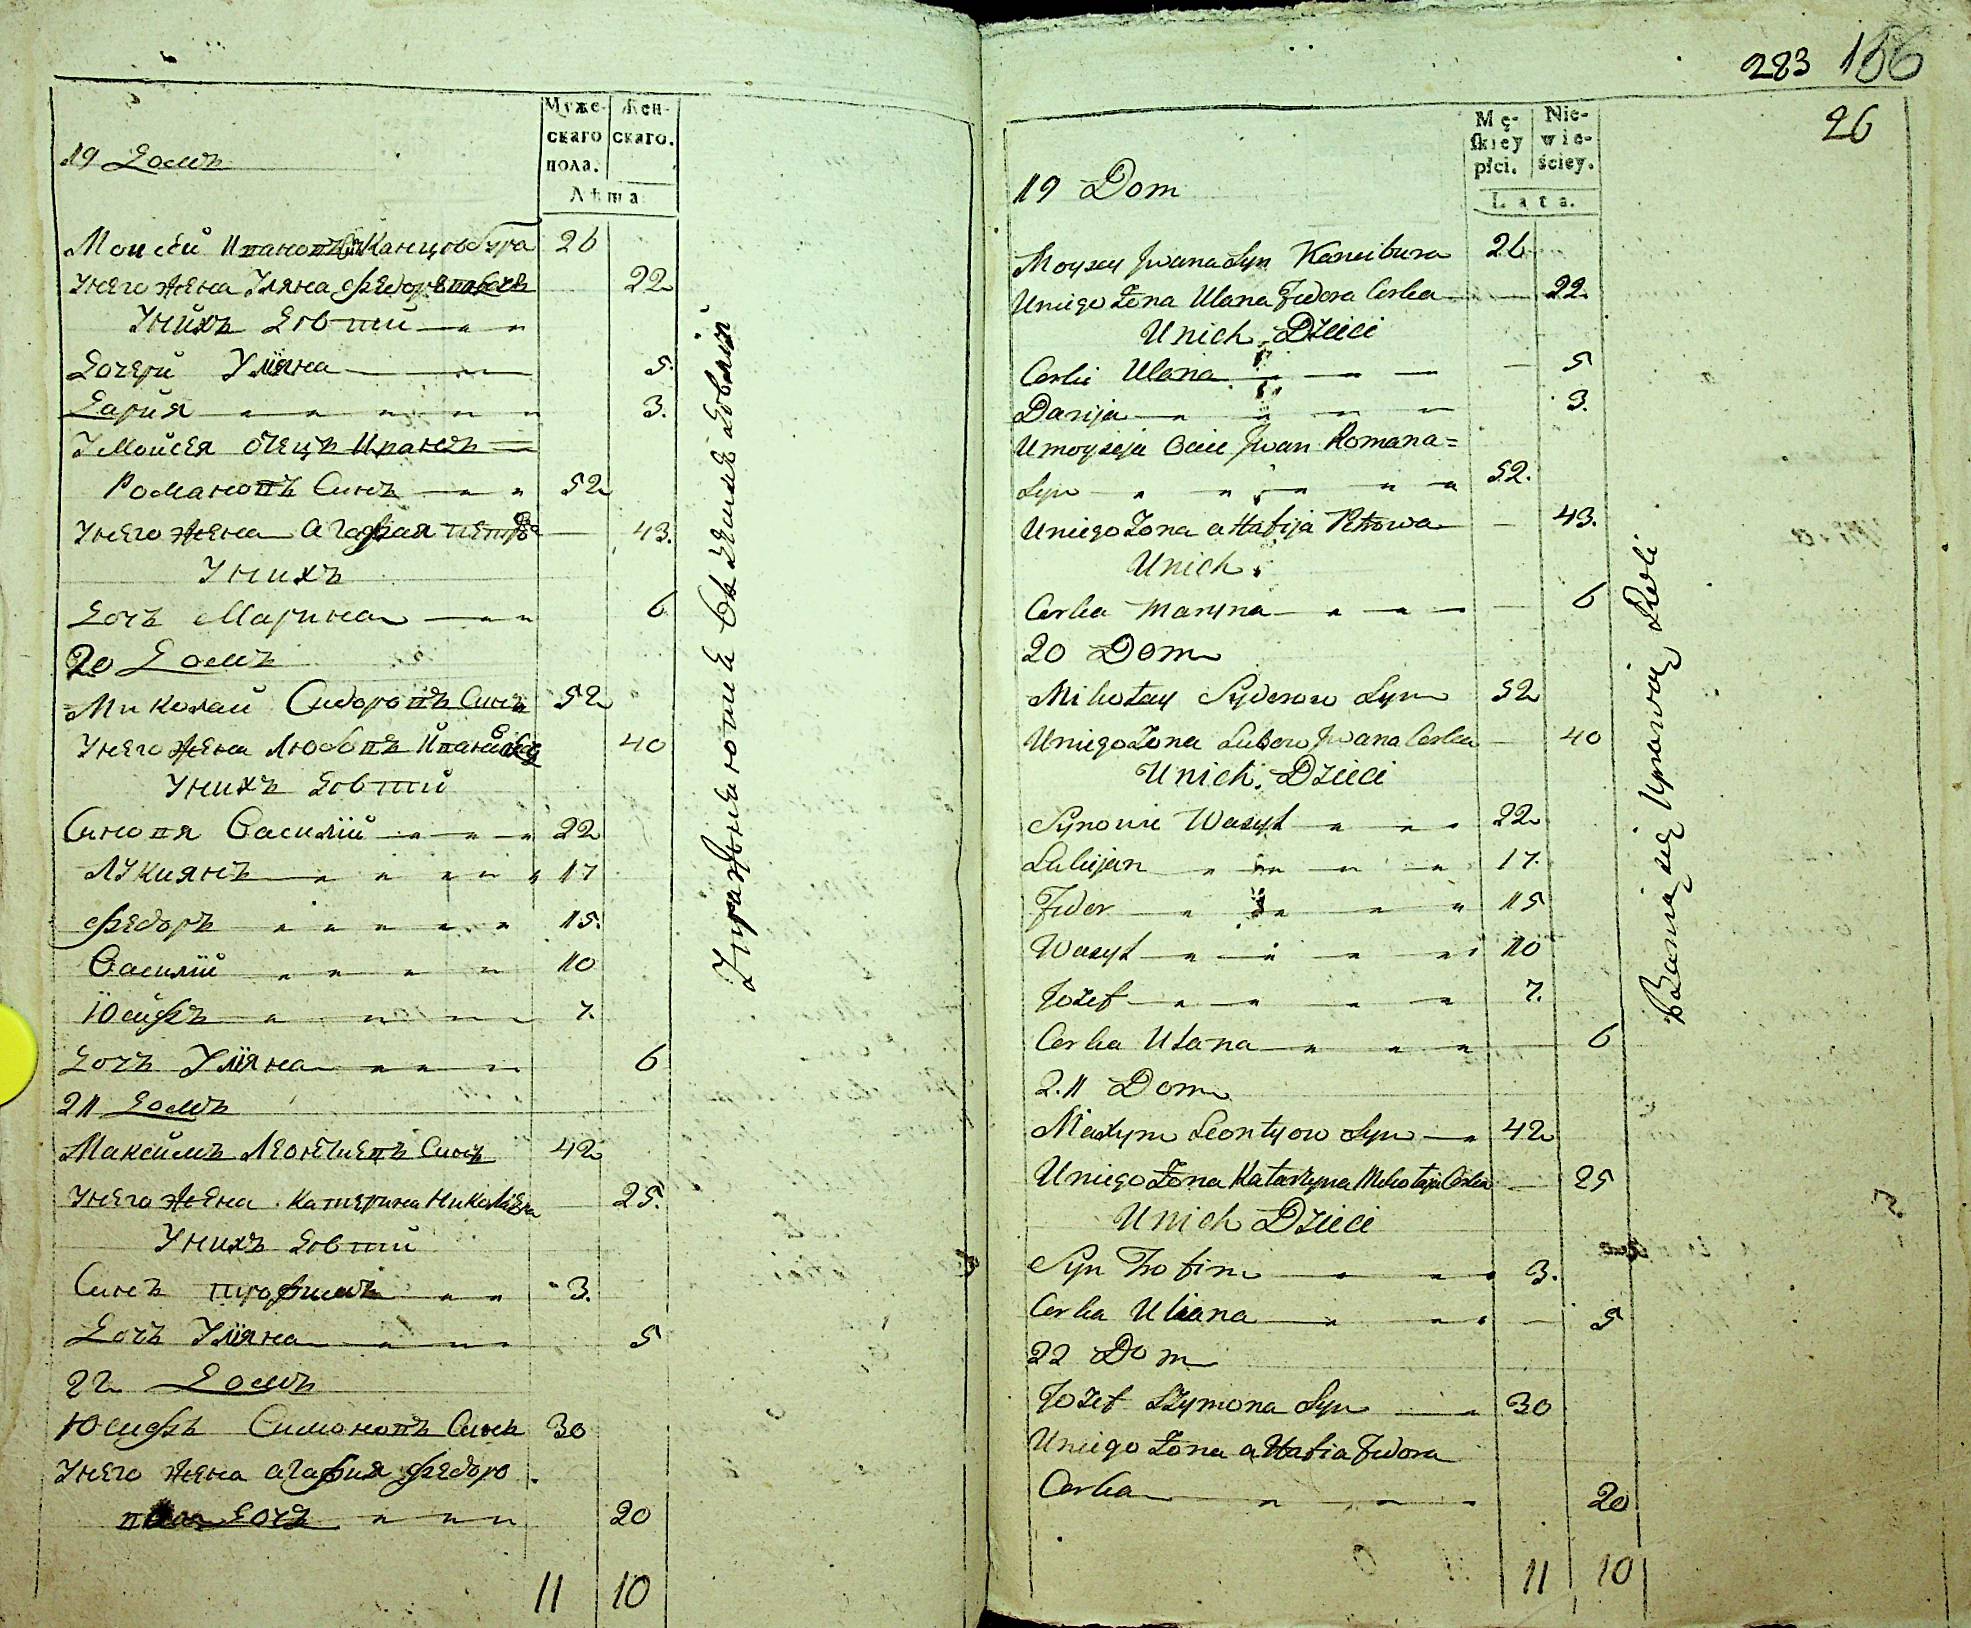 Муже-
скаго
пола.
Жен-
скаго.
Лѣта
19 Домъ
Моисей Ивановъ Канцобура 26
Унего жена Уляна Федорова 22
Унихъ Дѣти
Дочери Улїяна 5.
Дария 3.
У Мойсея отецъ Иванъ
Романовъ Синъ 52
Унего жена Агафия Петро 43.
Унихъ
Дочъ Марина 6
20 Домъ
Миколай Сидоровъ Синъ 52
Унего жена Любовъ 40
Унихъ Дѣти
Синовя Василїй 22
Лукиянъ 17
Федоръ 15.
Василїй 10
Юсифъ 7.
Дочъ Улїяна 6
21 Домъ
Максимъ Леонтиевъ Синъ 42
Унего жена Катерина Николаева 25.
Унихъ Дѣти
Синъ Трофимъ 3.
Дочъ Улїяна 5
22 Домъ
Юсифъ Симоновъ Синъ 30
Унего жена Агафия Федоро
Дочъ 20
11 10
Упражняются въ земледѣлїи
283 156
26
Mę-
skiey
płci.
Nie-
wie-
ściey.
Lata.
19 Dom
Moysey Jwana Syn Kancibura 26
Uniego Zona Ulana Fedora Corka 22.
Unich Dzieci
Corki Ulana 5
Darija 3.
Umoyseja Ociec Jwan Romana=
Syn 52.
Uniego Zona aHafija Petrowa 43.
Unich
Corka Maryna 6
20 Dom
Mikołay Syderow Syn 52
Uniego Zona Lubow Jwana Corka 40
Unich Dzieci
Synowie Wasyl 22
Lukijan 17.
Fedor 15
Wasyl 10
Jozef 7.
Corka Ulana 6
21 Dom
Maxym Leontyow Syn 42
Uniego Zona Katarzyna Mikołaja Corka 25
Unich Dzieci
Syn Trofim 3.
Corka Uliana 5
22 Dom
Jozef Szymona Syn 30
Uniego Zona aHafia Fedora
Corka 20
11 10
Bawią się Uprawą Roli